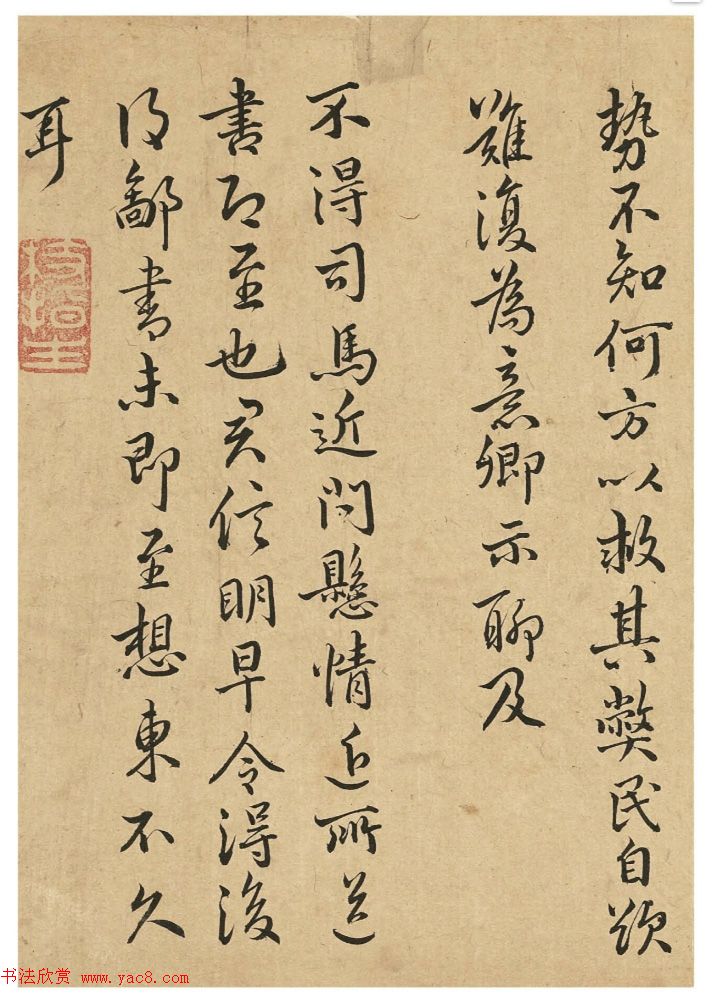 勢不知何方以救其弊民自
難復為意卿示聊及
不得司馬近問懸情近所送
書即至也君信明早令得復
得鄙書未即至想東不久
耳
书法欣赏 www.yac8.com